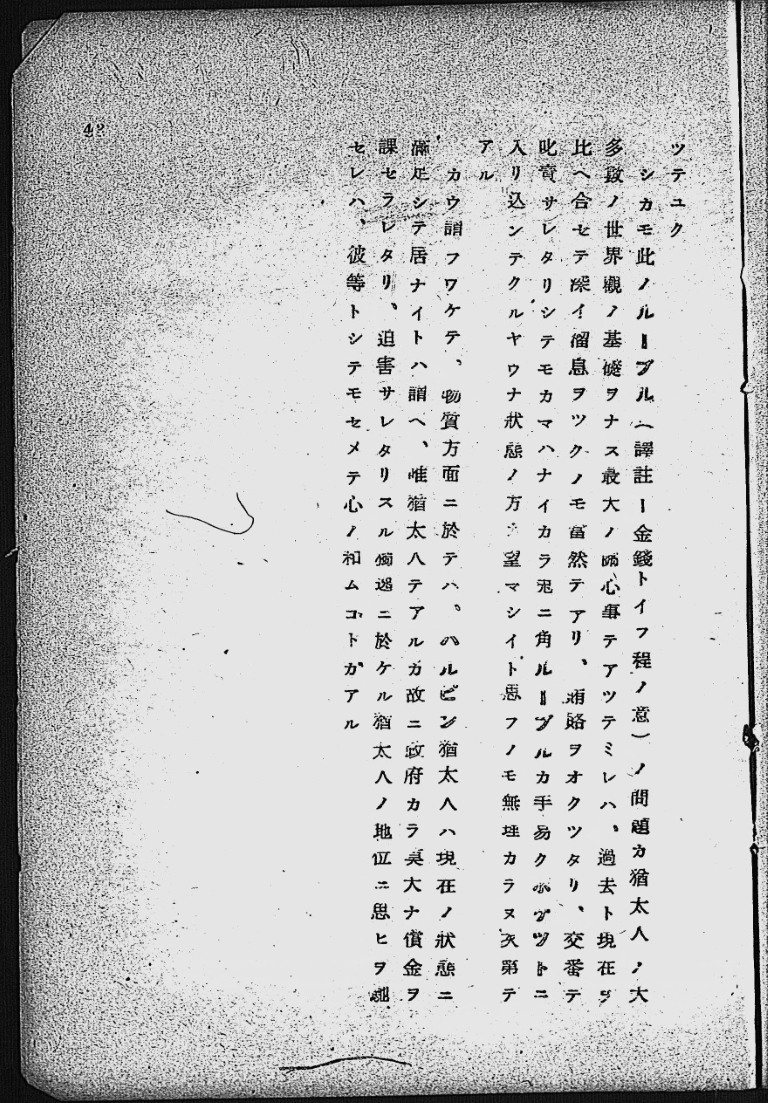 ツテユク
シカモ此ノルーブル(譯註ー金錢トイフ程ノ意)ノ問題カ猶太人ノ大
多數ノ世界觀ノ基礎ヲナス最大ノ關心事テアツテミレハ、過去ト現在ヲ
比ヘ合セテ深イ溜息ヲツクノモ當然テアリ、賄賂ヲオクツタリ、交番テ
叱責サレタリシテモカマハナイカラ兎ニ角ルーブルカ手易クポケツトニ
入リ込ンテクルヤウナ狀態ノ方カ望マシイト思フノモ無理カラヌ次第テ
アル
カウ謂フワケテ、物質方面ニ於テハ、ハルビン猶太人ハ現在ノ狀態ニ
滿足シテ居ナイトハ謂ヘ、唯猶太人テアルカ故ニ政府カラ莫大ナ償金ヲ
課セラレタリ、迫害サレタリスル獨逸ニ於ケル猶太人ノ地位ニ思ヒヲ馳
セレハ、彼等トシテモセメテ心ノ和ムコトカアル
42